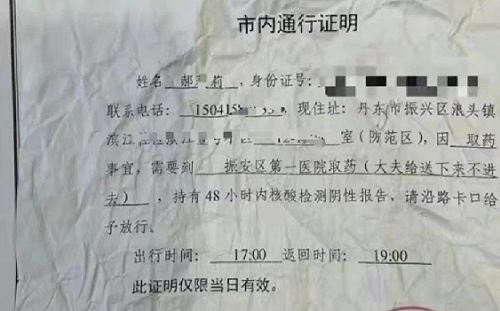 市内通行证明
姓名：郝 莉，身份证号：
联系电话：15041 现住址：丹东市振兴区浪头镇
滨江 室（防范区），因 取药
事宜，需要到 振安区第一医院取药（大夫给送下来不进
去），持有48小时内核酸检测阴性报告，请沿路卡口给
予放行。
出行时间： 17:00 返回时间： 19:00
此证明仅限当日有效。